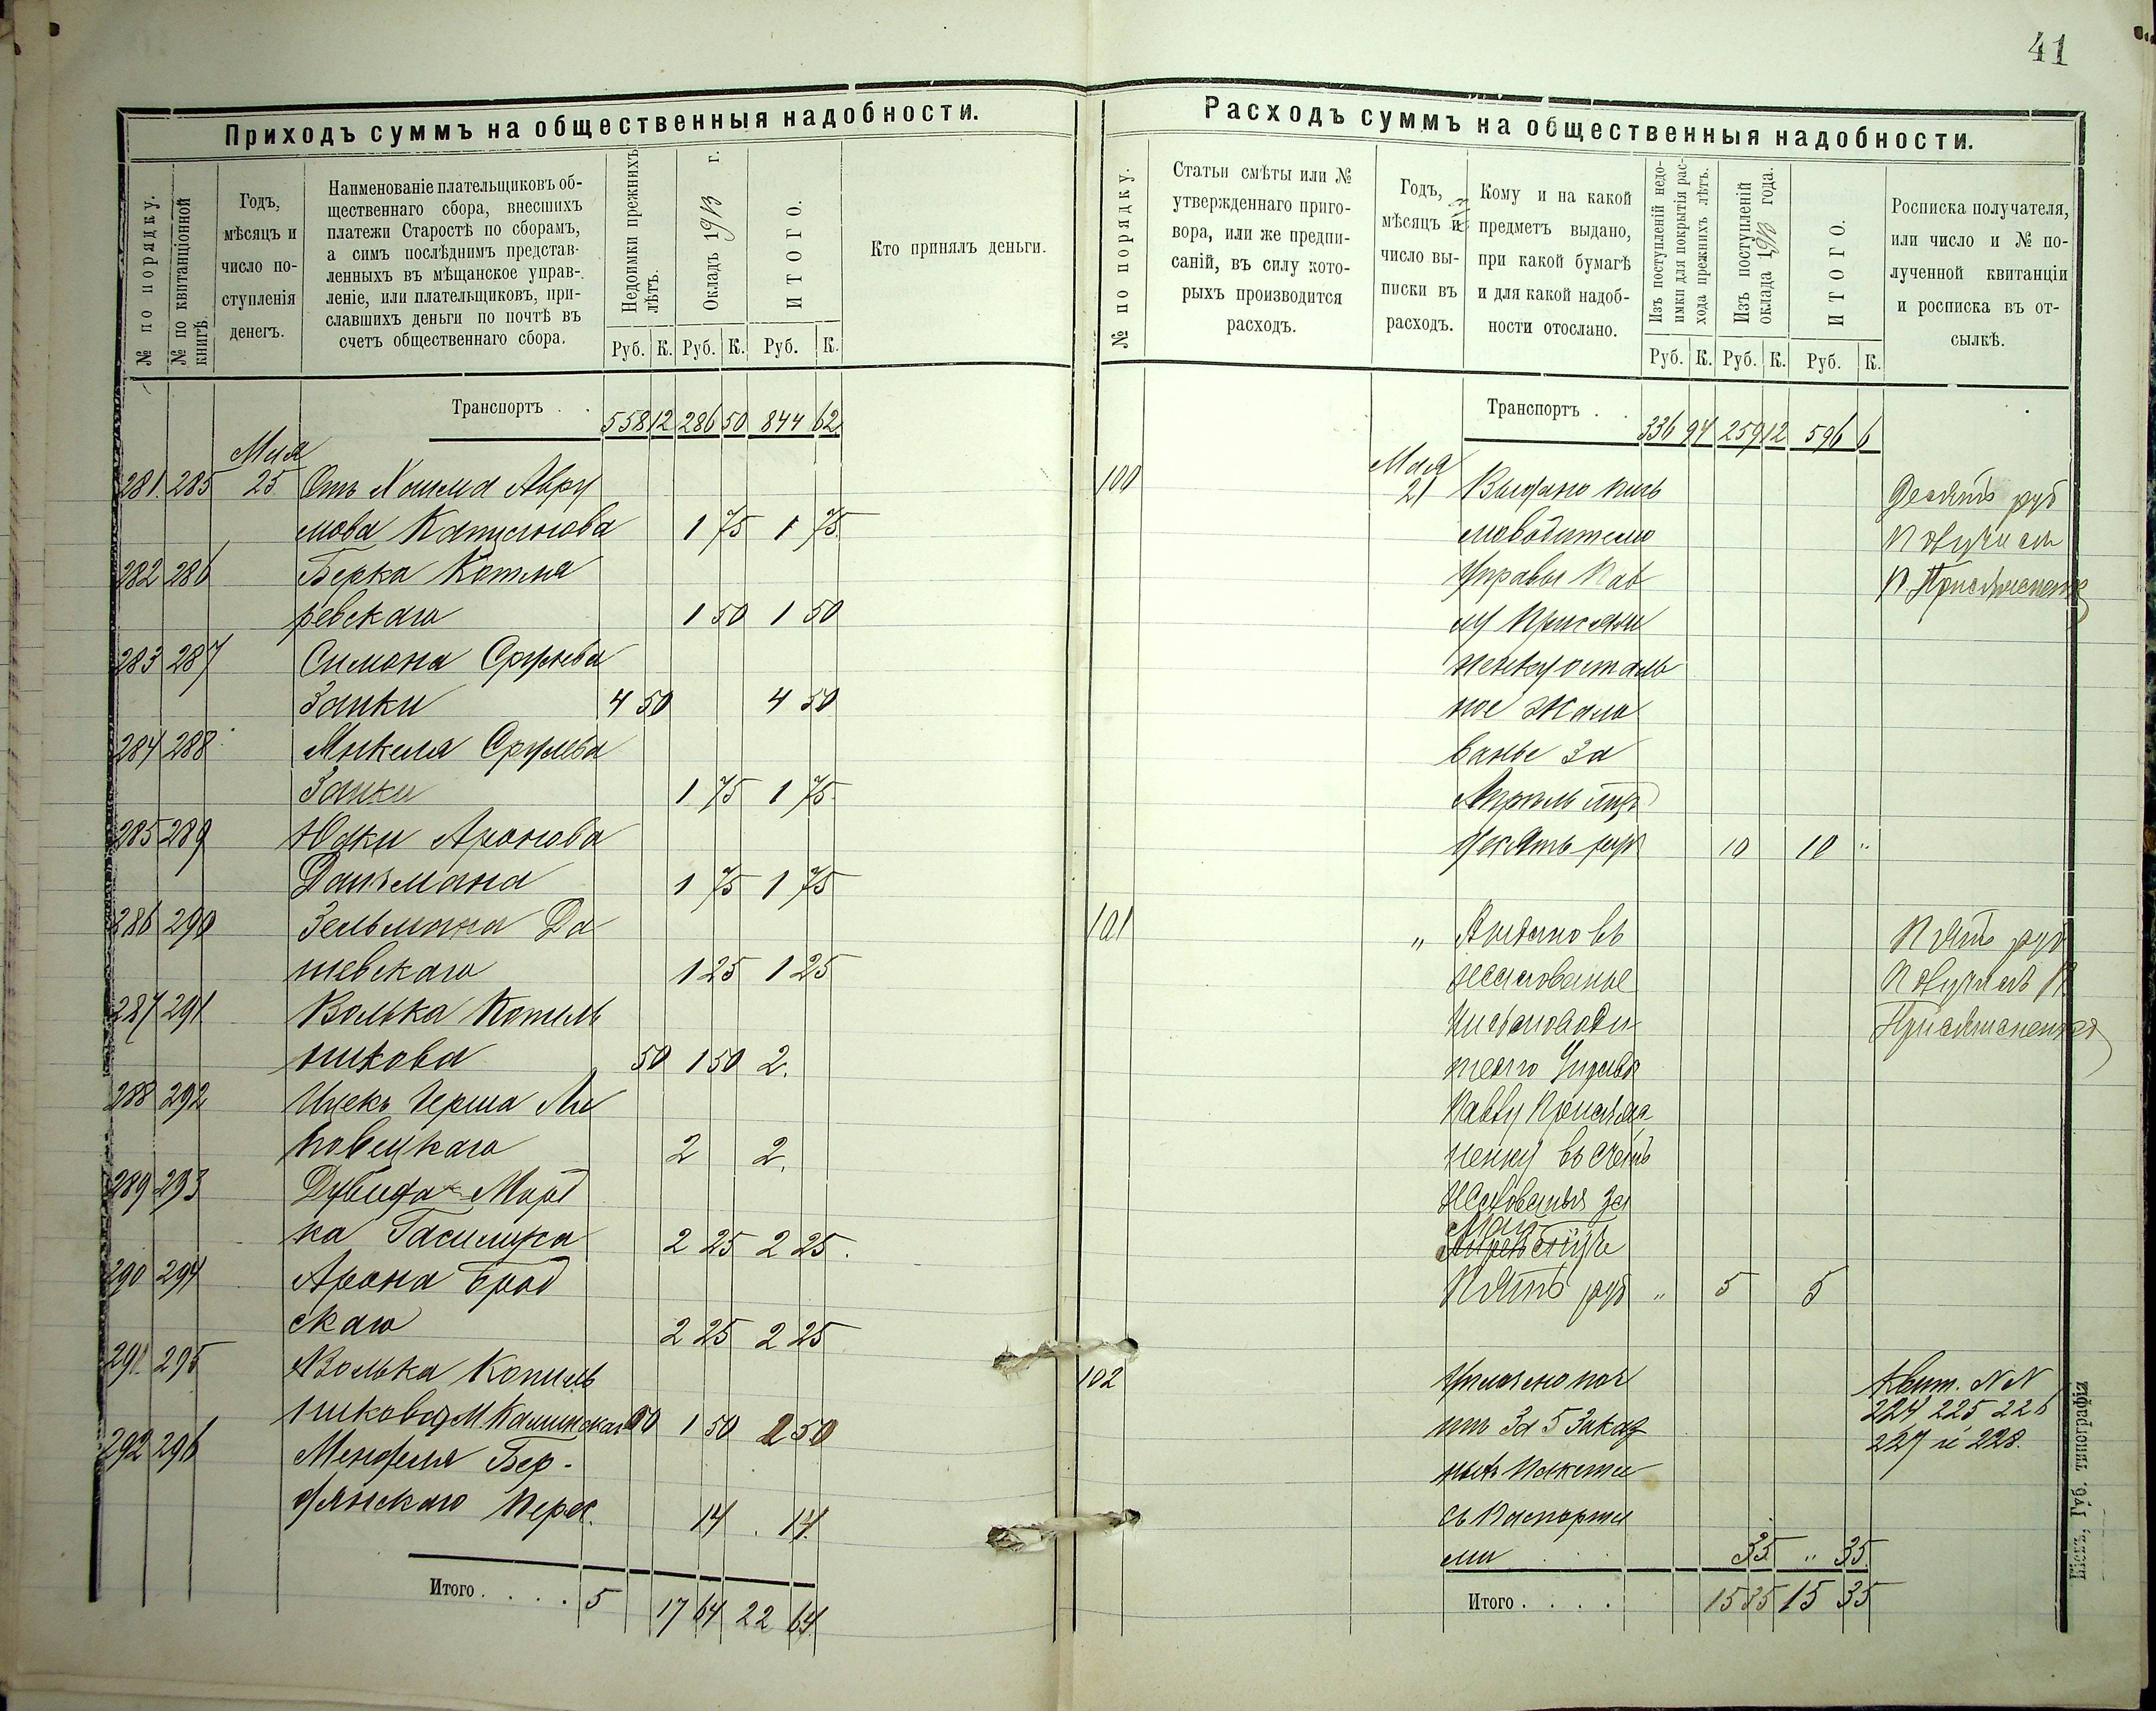 41
Приходъ суммъ на общественныя надобности.
№ по порядку.
№ по квитанціонной книгѣ.
Годъ, мѣсяцъ и число поступленія денегъ.
Наименованіе плательщиковъ об-
щественнаго сбора, внесшихъ
платежи Старостѣ по сборамъ,
а симъ послѣднимъ представ-
ленныхъ въ мѣщанское управ-
леніе, или плательщиковъ, при-
славшихъ деньги по почтѣ въ
счетъ общественнаго сбора.
Недоимки прежнихъ лѣтъ.
Окладъ 1913 г.
ИТОГО.
Руб. К. Руб. К. Руб. К.
Кто принялъ деньги.
Транспортъ . . 558 12 286 50 844 62
Мая
281. 285 25 Отъ Хаима Авру
мова 1 75 1 75
282 286 Берка Котля
ревскаго 1 50 1 50
283 287 Симона Срулева
Заики 4 50 4 50
284 288 Янкеля Срулева
Заики 1 75 1 75
285 289 Юдки Аронова
1 75 1 75
286 290 Зельмана Да
шевскаго 1 25 1 25
287 291 Волька Копиль
никова 50 1 50 2.
288 292 Ицекъ Герша Ли
повецкаго 2 2.
289 293 Дувида Морд
ка Гасилука 2 25 2 25.
290 294 Арона Брод
скаго 2 25 2 25
291. 295 Волька Копиль
никова 50 1 50 2 50
292 296 Менделя Бер-
дянскаго Перес. 14 . 14.
Итого . . . . 5 17 64 22 64
Расходъ суммъ на общественныя надобности.
№ по порядку.
Статьи смѣты или №
утвержденнаго приго-
вора, или же предпи-
саній, въ силу кото-
рыхъ производится
расходъ.
Годъ,
мѣсяцъ и
число вы-
писки въ
расходъ.
Кому и на какой
предметъ выдано,
при какой бумагѣ
и для какой надоб-
ности отослано.
Изъ поступленій недо-
имки для покрытія рас-
хода прежнихъ лѣтъ.
Изъ поступленій
оклада 1913 года.
ИТОГО.
Руб. К. Руб. К. Руб. К.
Росписка получателя,
или число и № по-
лученной квитанціи
и росписка въ от-
сылкѣ.
Транспортъ . . 336 94 259 12 596 6
Мая
100 21 Выдано пись Десять руб
моводителю Получилъ
Управы Пав П. Присяжненко
лу Присяж
ненку осталь
ное жало
ванье за
Апрель мцъ
десять руб 10 10 "
101 " Выдано въ Пять руб
жалованье Получилъ П.
письмоводи Присяжненко
телю Управы
Павлу Присяж
ненку въ счетъ
жалованья за
Май
Апрель мцъ
Пять руб " 5 5
102 Уплачено поч Квит. NN
тѣ за 5 заказ 224, 225 226
ныхъ пакета 227 и 228.
съ паспорта
ми 35 " 35.
Итого . . . . 15 35 15 35
Кіевъ, Губ. типографія